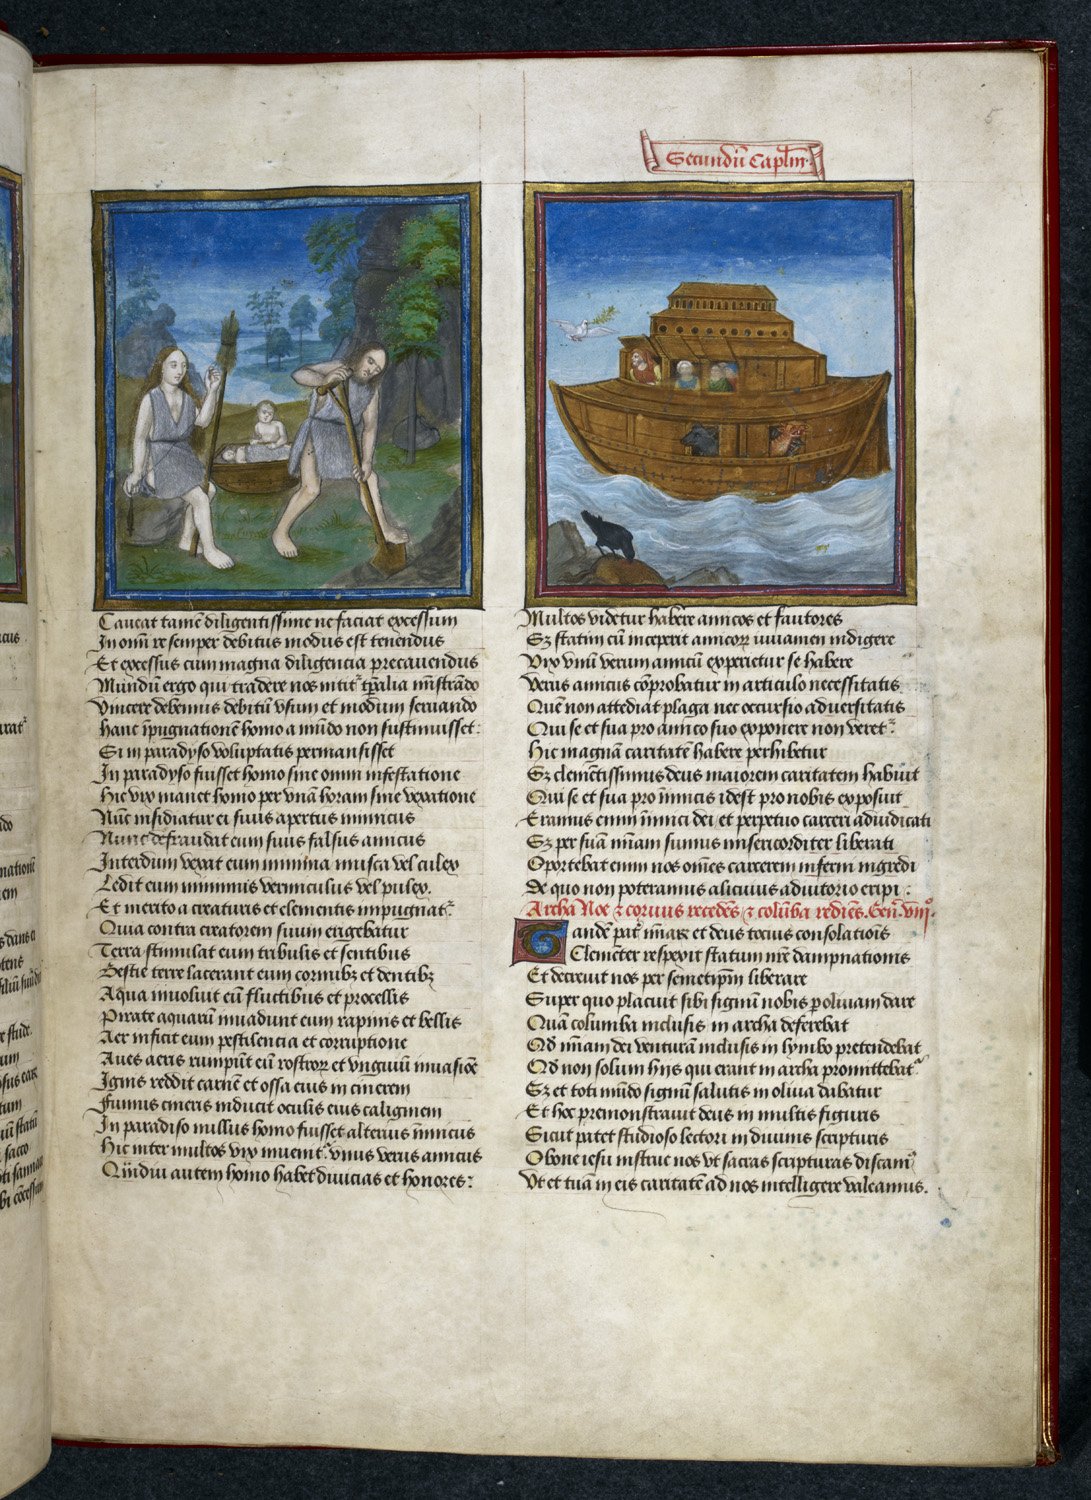 5
Secundũ Capl̃m
Caueat tamẽ diligentissime ne faciat excessum
In om̃i re semper debitus modus est tenendus
Et excessus cum magna diligencia precauendus
Mundũ ergo qui tradere nos intit̃ tp̃alia mĩstrãdo
Vincere debemus debitũ vsum et modum seruando
Hanc ĩpugnationẽ homo a mũdo non sustinuisset:
Si in paradyso voluptatis permansisset
In paradyso fuisset homo sine omni infestatione
Hic vix manet homo per vnã horam sine vexatione
Nũc insidiatur ei suus apertus inimicus
Nunc defraudat eum suus falsus amicus
Interdum vexat eum minima musca vel culex
Ledit eum minimus vermiculus vel pulex.
Et merito a creaturis et elementis impugnat᷒
Quia contra creatorem suum erigebatur
Terra stimulat eum tribulis et sentibus
Bestie terre lacerant eum cornibꝫ et dentibꝫ
Aqua inuoluit eũ fluctibus et procellis
Pirate aquarũ inuadunt eum rapinis et bellis
Aer inficit eum pestilencia et corruptione
Aues aeris rumpũt eũ rostroꝝ et vnguiũ inuasiõe
Ignis reddit carnẽ et ossa eius in cinerem
Fumus cineris inducit oculis eius caliginem
In paradiso nullus homo fuisset alterius ĩimicus
Hic inter multos vix inueint᷒ vnus verus amicus
Qũdiu autem homo habet diuicias et honores:
Multos videtur habere amicos et fautores
Sꝫ statim cũ inceperit amicoꝝ iuuamen indigere
Vix vnũ verum amicũ experietur se habere
Verus amicus cõprobatur in articulo necessitatis
Quẽ non attediat plaga nec occursio aduersitatis
Qui se et sua pro amico suo exponere non veret᷒
Hic magnã caritatẽ habere perhibetur
Sꝫ clemẽtissimus deus maiorem caritatem habuit
Qui se et sua pro inimicis idest pro nobis exposuit
Eramus enim ĩimici dei et perpetuo carceri adiudicati
Sꝫ per suã mĩam sumus misericorditer liberati
Oportebat enim nos om̃es carcerem inferni ingredi
De quo non poteramus alicuius adiutorio eripi:
Archa Noe ⁊ coruus recedẽs ⁊ colũba rediẽs. Geñ. viijº.
Tandẽ pat᷒ mĩaꝝ et deus tocius consolatiõis
Clemẽter respexit statum nr̃e dampnationis
Et decreuit nos per semetip̃m liberare
Super quo placuit sibi signũ nobis ꝑ oliuam dare
Quã columba inclusis in archa deferebat
Qd̃ mĩam dei venturã inclusis in lymbo pretendebat
Qd̃ non solum hijs qui erant in archa promittebat᷒
Sꝫ et toti mũdo signũ salutis in oliua dabatur
Et hoc premonstrauit deus in multis figuris
Sicut patet studioso lectori in diuinis scripturis
O bone iesu instrue nos vt sacras scripturas discam᷒
Vt et tuã in eis caritatẽ ad nos intelligere valeamus.